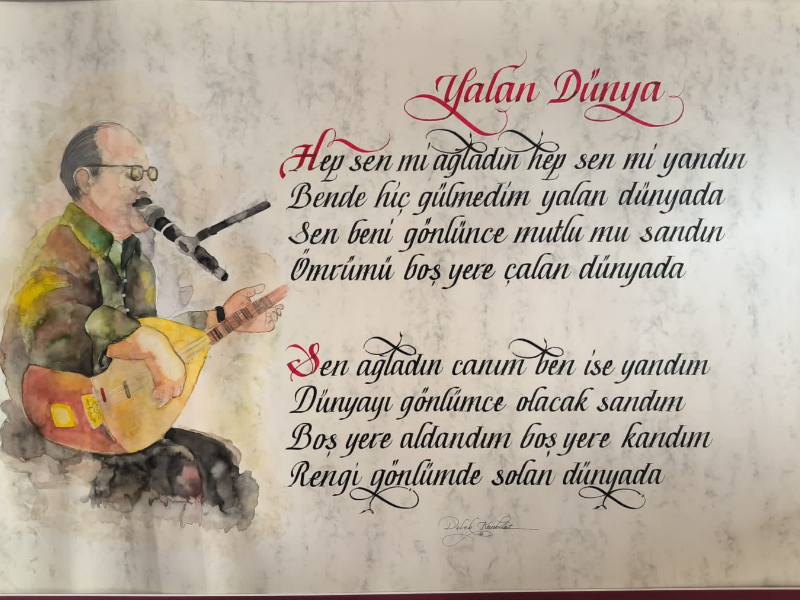 Yalan Dünya
Hep sen mi ağladın hep sen mi yandın
Bende hiç gülmedim yalan dünyada
Sen beni gönlünce mutlu mu sandın
Ömrümü boş yere çalan dünyada
Sen ağladın canım ben ise yandım
Dünyayı gönlümce olacak sandım
Boş yere aldandım boş yere kandım
Rengi gönlümde solan dünyada